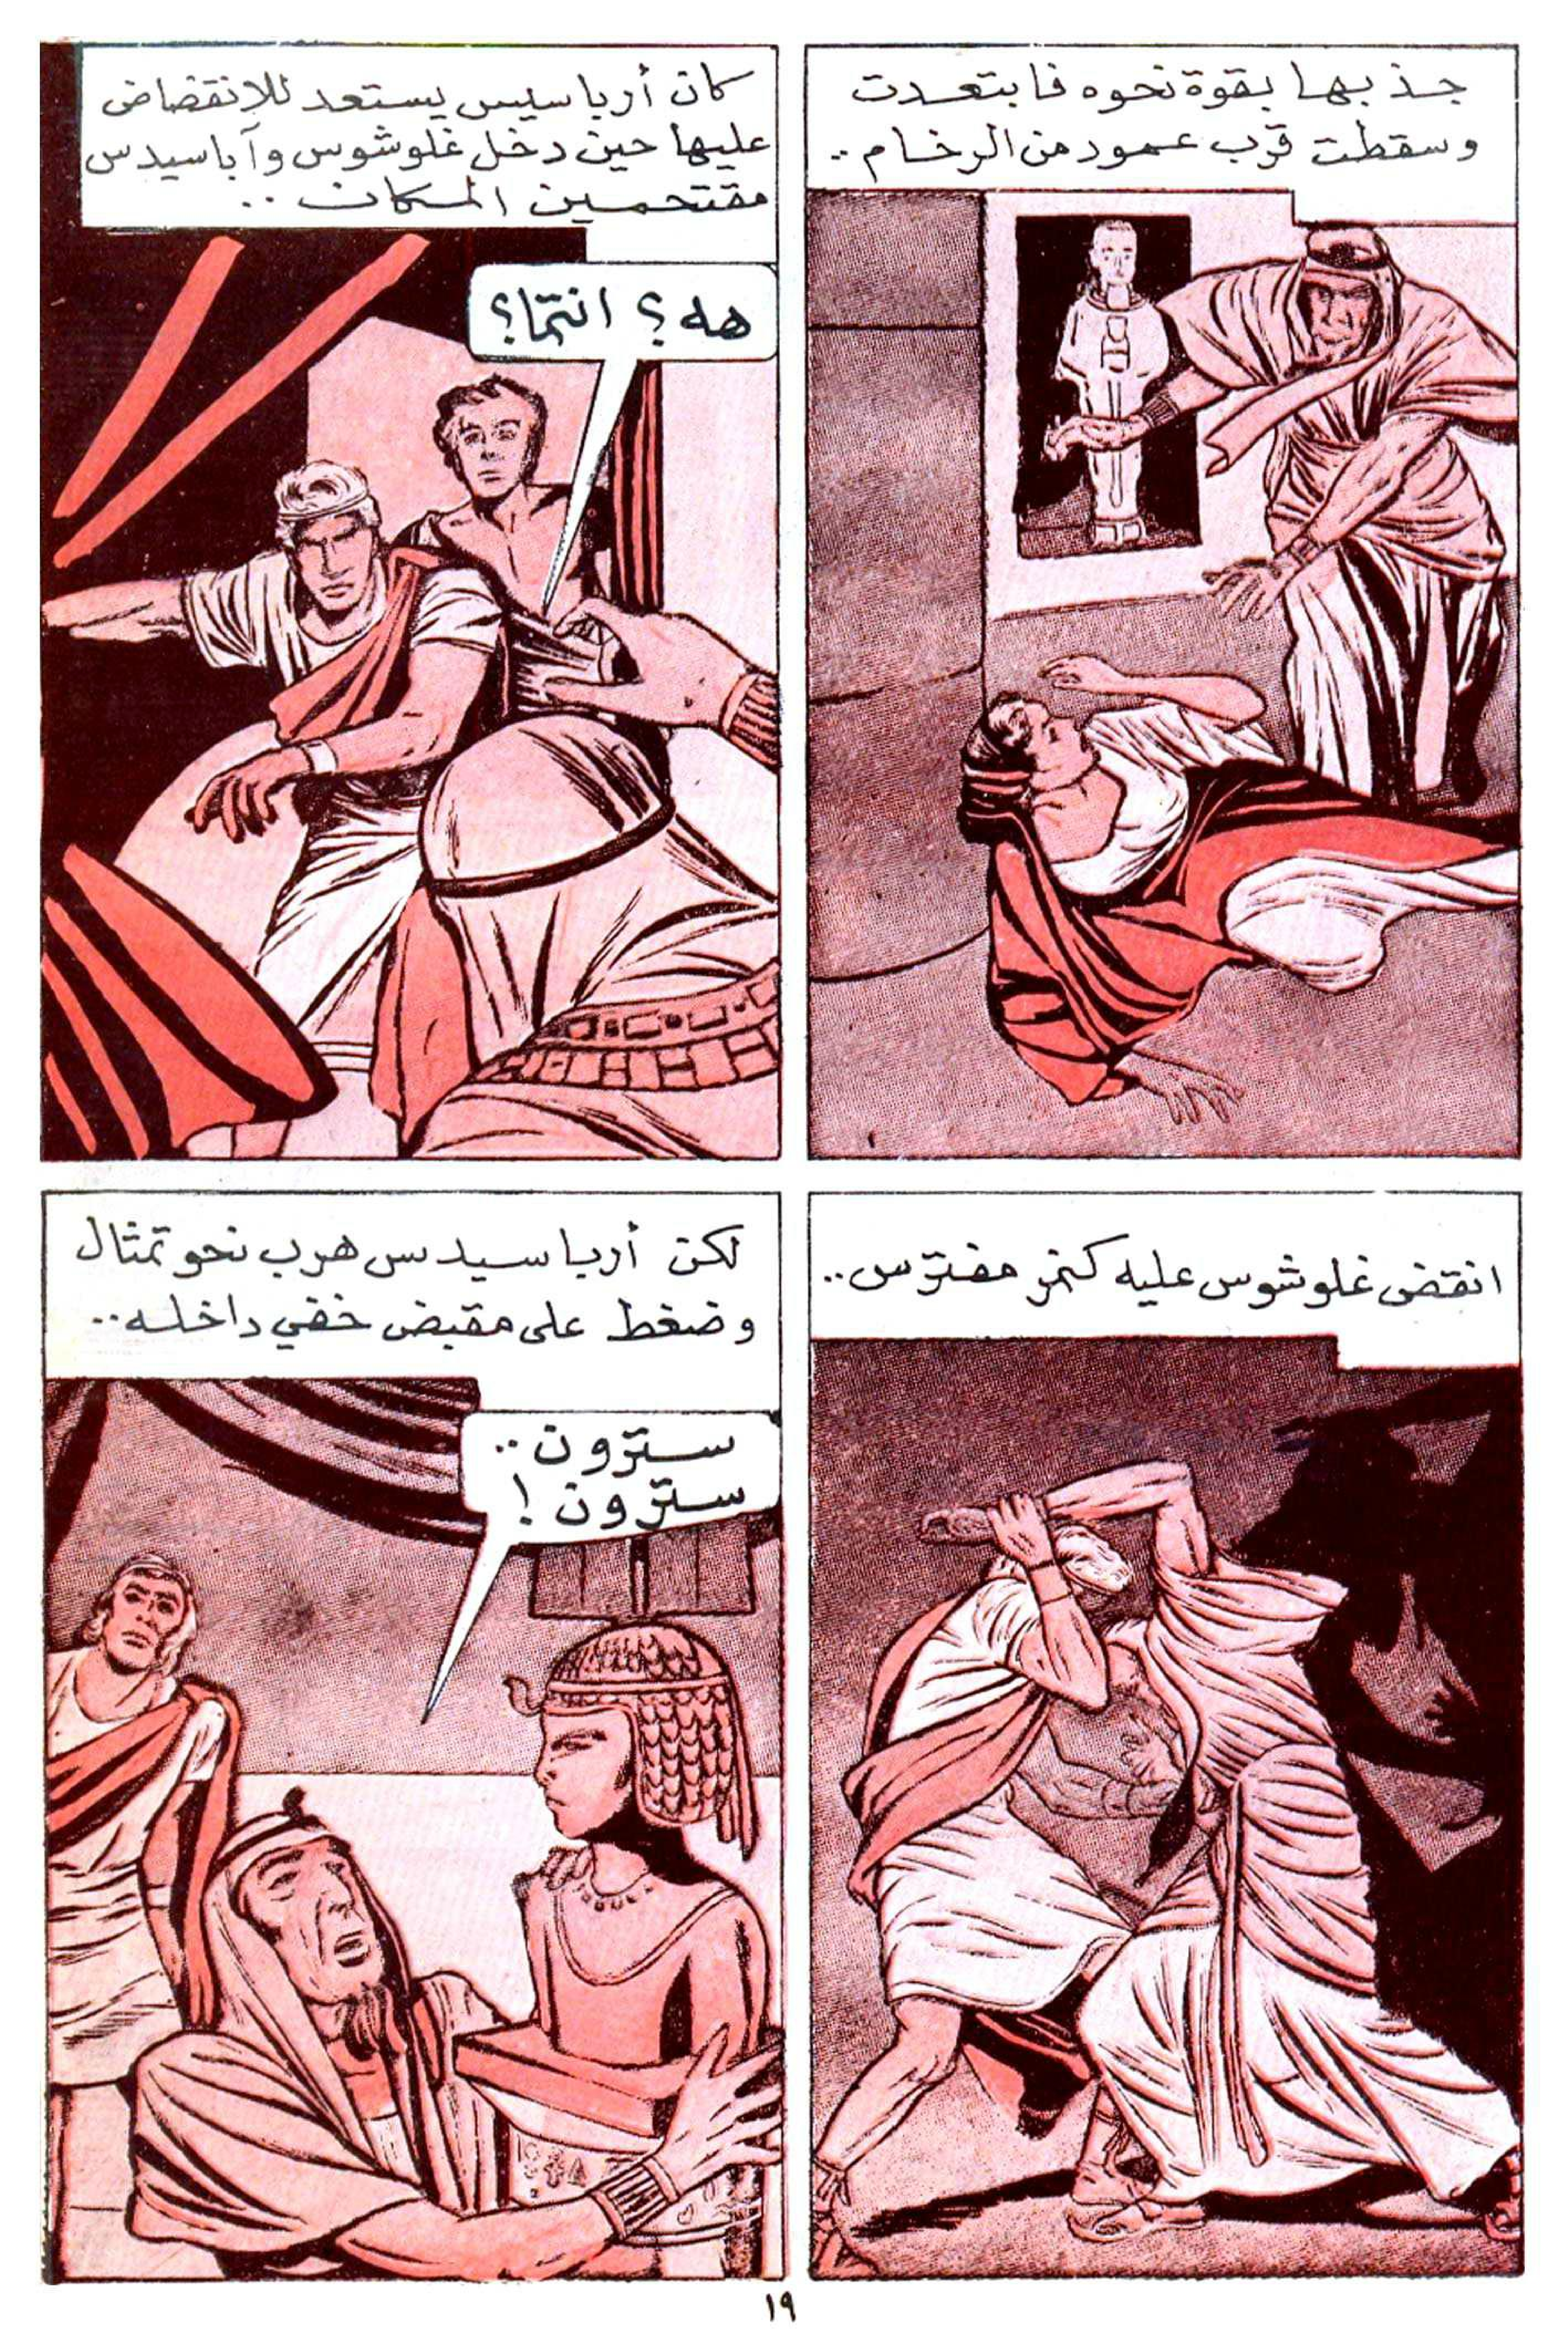 جذبها بقوة نحوه فابتعدت
وسقطت قرب عمود من الرخام..
كان أرباسيس يستعد للانقضاض
عليها حين دخل غلوشوس وآباسيدس
مقتحمين المكان..
هه؟ انتما؟
انقض غلوشوس عليه كنمر مفترس..
لكن أرباسيدس هرب نحو تمثال
وضغط على مقبض خفي داخله..
سترون..
سترون!
١٩